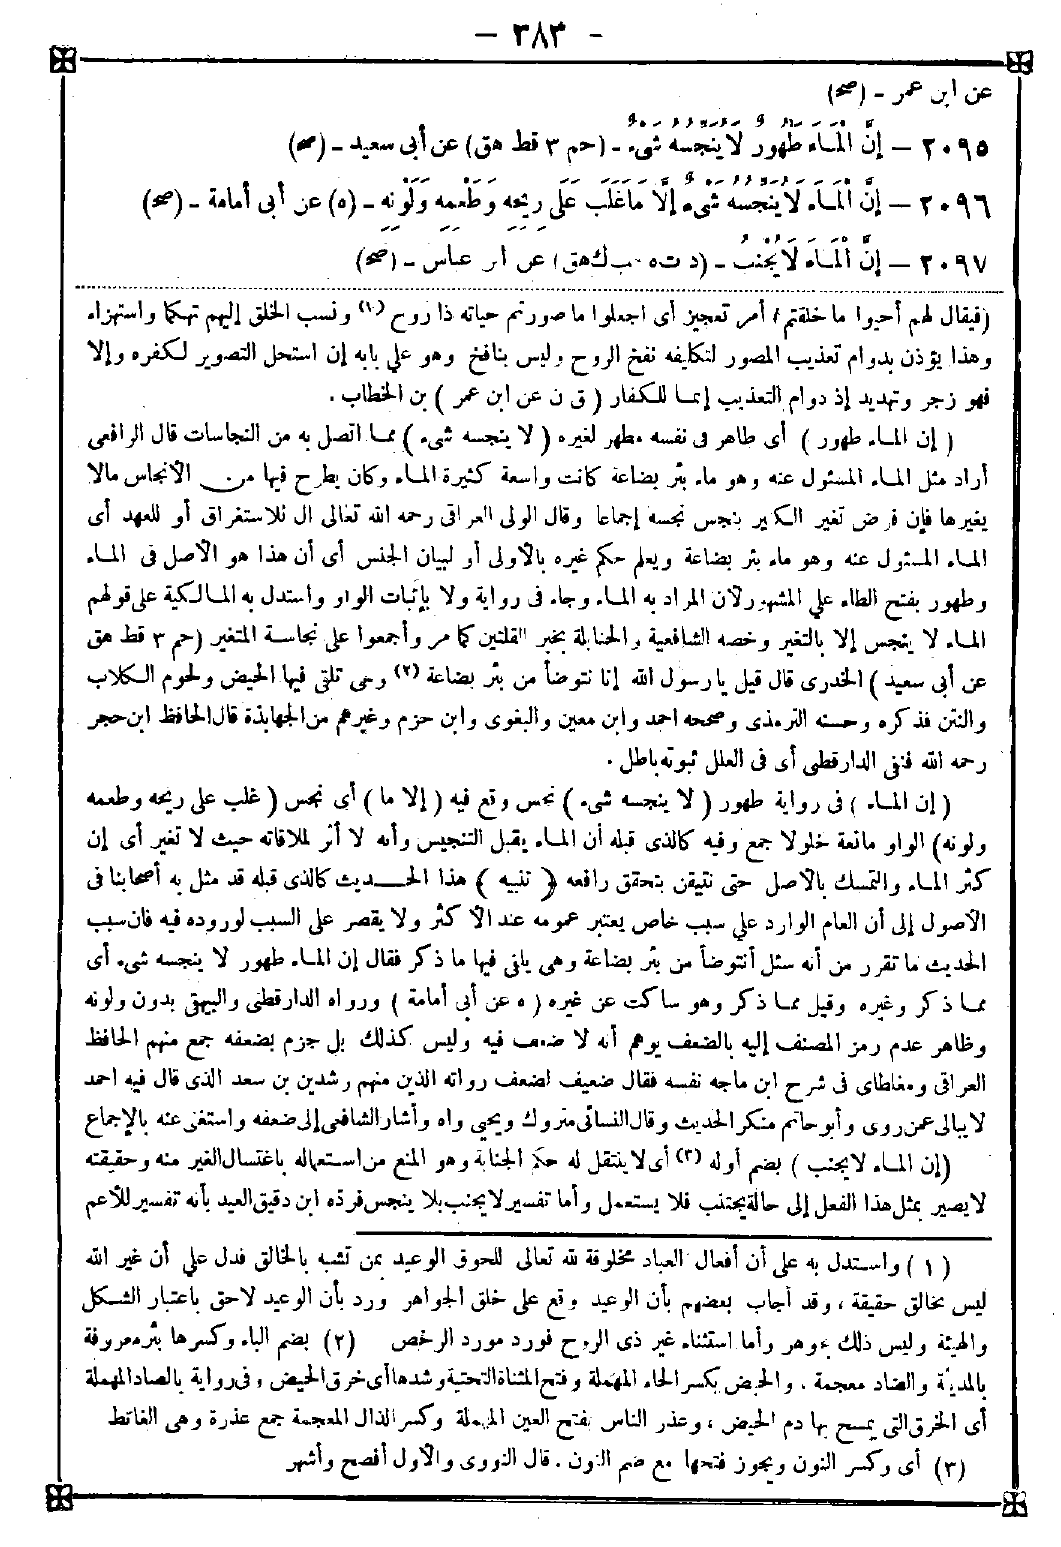 - ٣٨٣ -
عن ابن عمر - (صح)
٢٠٩٥ - إِنَّ الْمَاءَ طَهُورٌ لَا يُنَجِّسُهُ شَيْءٌ - (حم ٣ قط هق) عن أبى سعيد - (صح)
٢٠٩٦ - إِنَّ الْمَاءَ لَا يُنَجِّسُهُ شَيْءٌ إِلَّا مَا غَلَبَ عَلَى رِيحِهِ وَطَعْمِهِ وَلَوْنِهِ - (ه) عن أبى أمامة - (صح)
٢٠٩٧ - إِنَّ الْمَاءَ لَا يُجْنِبُ - (د ت ه حب ك هق) عن ابن عباس - (صح)
(فيقال لهم أحيوا ما خلقتم) أمر تعجيز أى اجعلوا ما صورتم حياته ذا روح (١) ونسب الخلق إليهم تهكما واستهزاء
وهذا يؤذن بدوام تعذيب المصور لتكليفه نفخ الروح وليس بنافخ وهو على بابه إن استحل التصوير لكفره وإلا
فهو زجر وتهديد إذ دوام التعذيب إنما للكفار ( ق ن عن ابن عمر ) بن الخطاب .
( إن الماء طهور ) أى طاهر فى نفسه مطهر لغيره ( لا ينجسه شىء ) مما اتصل به من النجاسات قال الرافعى
أراد مثل الماء المسئول عنه وهو ماء بئر بضاعة كانت واسعة كثيرة الماء وكان يطرح فيها من الأنجاس مالا
يغيرها فإن فرض تغير الكثير بنجس نجسه إجماعا وقال الولى العراقى رحمه الله تعالى ال للاستغراق أو للعهد أى
الماء المسئول عنه وهو ماء بئر بضاعة ويعلم حكم غيره بالأولى أو لبيان الجنس أى أن هذا هو الأصل فى الماء
وطهور بفتح الطاء على المشهور لأن المراد به الماء وجاء فى رواية ولا بإثبات الواو واستدل به المالكية على قولهم
الماء لا ينجس إلا بالتغير وخصه الشافعية والحنابلة بخبر القلتين كما مر وأجمعوا على نجاسة المتغير (حم ٣ قط هق
عن أبى سعيد ) الخدرى قال قيل يارسول الله إنا نتوضأ من بئر بضاعة (٢) وهى تلقى فيها الحيض ولحوم الكلاب
والنتن فذكره وحسنه الترمذى وصححه احمد وابن معين والبغوى وابن حزم وغيرهم من الجهابذة قال الحافظ ابن حجر
رحمه الله فنفى الدارقطى أى فى العلل ثبوته باطل .
( إن الماء ) فى رواية طهور ( لا ينجسه شىء ) نجس وقع فيه ( إلا ما ) أى نجس ( غلب على ريحه وطعمه
ولونه) الواو مانعة خلو لا جمع وفيه كالذى قبله أن الماء يقبل التنجيس وأنه لا أثر لملاقاته حيث لا تغير أى إن
كثر الماء والتمسك بالأصل حتى نتيقن بتحقق رافعه ( تنبيه ) هذا الحديث كالذى قبله قد مثل به أصحابنا فى
الأصول إلى أن العام الوارد على سبب خاص يعتبر عمومه عند الأكثر ولا يقصر على السبب لوروده فيه فان سبب
الحديث ما تقرر من أنه سئل أنتوضأ من بئر بضاعة وهى يلقى فيها ما ذكر فقال إن الماء طهور لا ينجسه شىء أى
مما ذكر وغيره وقيل مما ذكر وهو ساكت عن غيره ( ه عن أبى أمامة ) ورواه الدارقطى والبيهقى بدون ولونه
وظاهر عدم رمز المصنف إليه بالضعف يوهم أنه لا ضعف فيه وليس كذلك بل جزم بضعفه جمع منهم الحافظ
العراقى ومغلطاى فى شرح ابن ماجه نفسه فقال ضعيف لضعف رواته الذين منهم رشدين بن سعد الذى قال فيه احمد
لا يبالى عمن روى وأبو حاتم منكر الحديث وقال النسائى متروك ويحيى واه وأشار الشافعى إلى ضعفه واستغنى عنه بالإجماع
(إن الماء لا يجنب ) بضم أوله (٣) أى لا ينتقل له حكم الجنابة وهو المنع من استعماله باغتسال الغير منه وحقيقته
لا يصير بمثل هذا الفعل إلى حالة يجتنب فلا يستعمل وأما تفسير لا يجنب بلا ينجس فرده ابن دقيق العيد بأنه تفسير للأعم
( ١ ) واستدل به على أن أفعال العباد مخلوقة لله تعالى للحوق الوعيد بمن تشبه بالخالق فدل على أن غير الله
ليس بخالق حقيقة ، وقد أجاب بعضهم بأن الوعيد وقع على خلق الجواهر ورد بأن الوعيد لاحق باعتبار الشكل
والهيئة وليس ذلك بجوهر وأما استثناء غير ذى الروح فورد مورد الرخص (٢) بضم الباء وكسرها بئر معروفة
بالمدينة والضاد معجمة . والحيض بكسر الحاء المهملة وفتح المثناة التحتية وشدها أى خرق الحيض ، وفى رواية بالصاد المهملة
أى الخرق التى يمسح بها دم الحيض ، وعذر الناس بفتح العين المهملة وكسر الذال المعجمة جمع عذرة وهى الغائط
(٣) أى وكسر النون ويجوز فتحها مع ضم النون . قال النووى والأول أفصح وأشهر